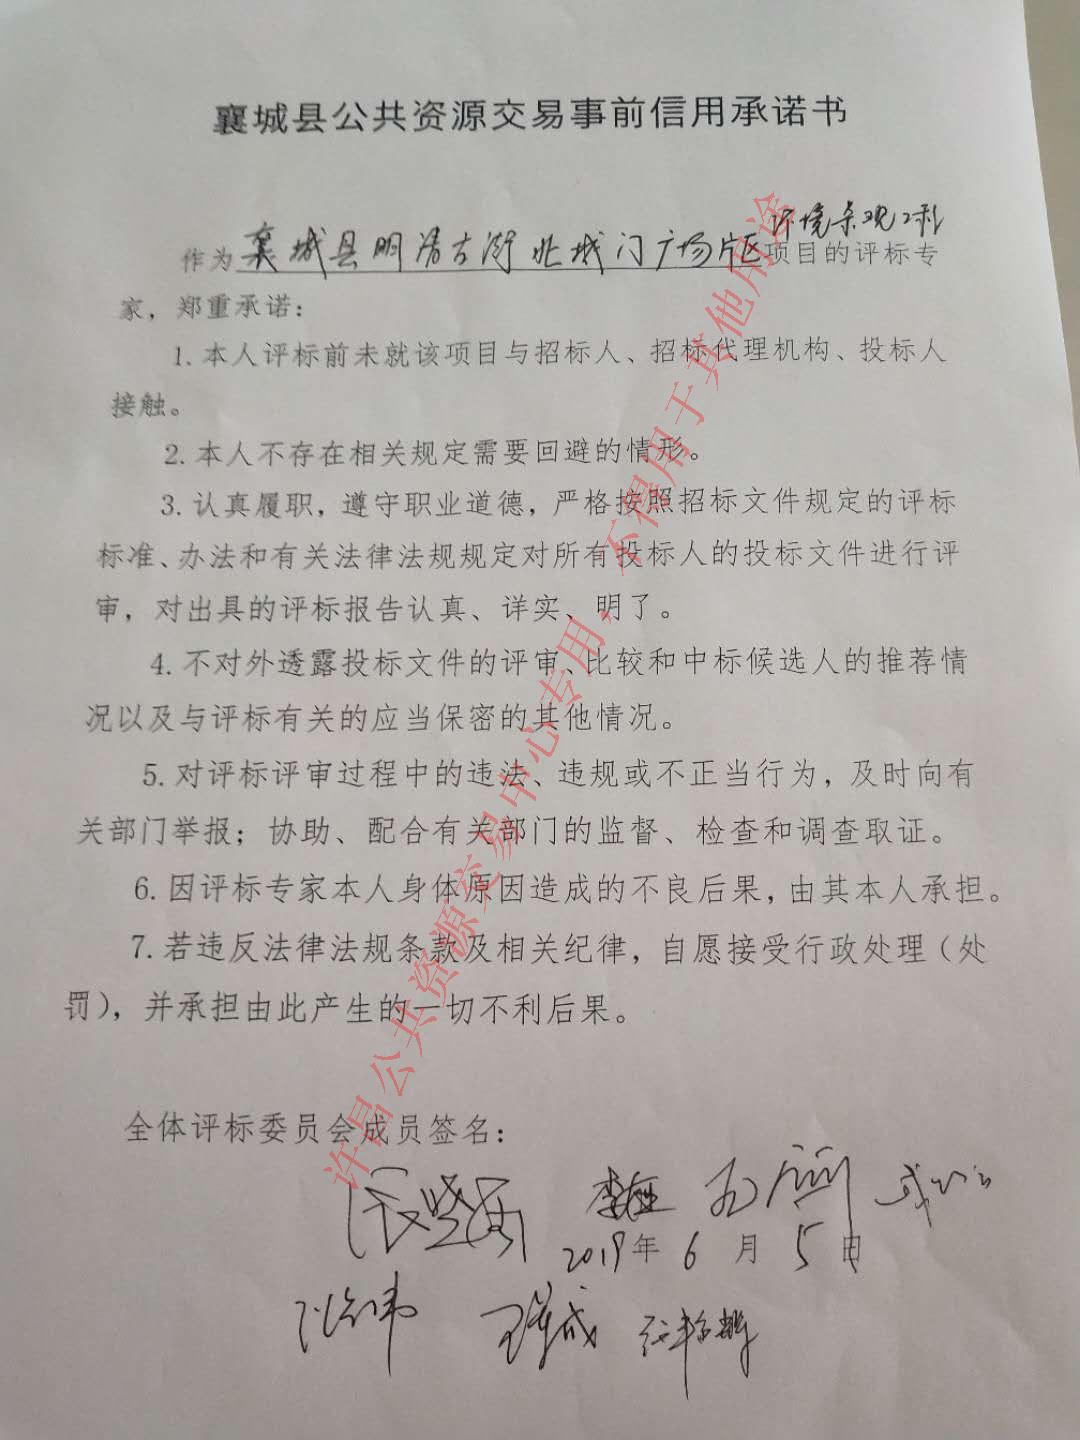 襄城县公共资源交易事前信用承诺书
环境景观工程
作为襄城县明清古街北城门广场片区项目的评标专
家，郑重承诺：
1. 本人评标前未就该项目与招标人、招标代理机构、投标人
接触。
2. 本人不存在相关规定需要回避的情形。
3. 认真履职，遵守职业道德，严格按照招标文件规定的评标
标准、办法和有关法律法规规定对所有投标人的投标文件进行评
审，对出具的评标报告认真、详实、明了。
4. 不对外透露投标文件的评审、比较和中标候选人的推荐情
况以及与评标有关的应当保密的其他情况。
5. 对评标评审过程中的违法、违规或不正当行为，及时向有
关部门举报；协助、配合有关部门的监督、检查和调查取证。
6. 因评标专家本人身体原因造成的不良后果，由其本人承担。
7. 若违反法律法规条款及相关纪律，自愿接受行政处理（处
罚），并承担由此产生的一切不利后果。
全体评标委员会成员签名：
2019年 6 月 5 日
许昌公共资源交易中心专用，不得用于其他用途